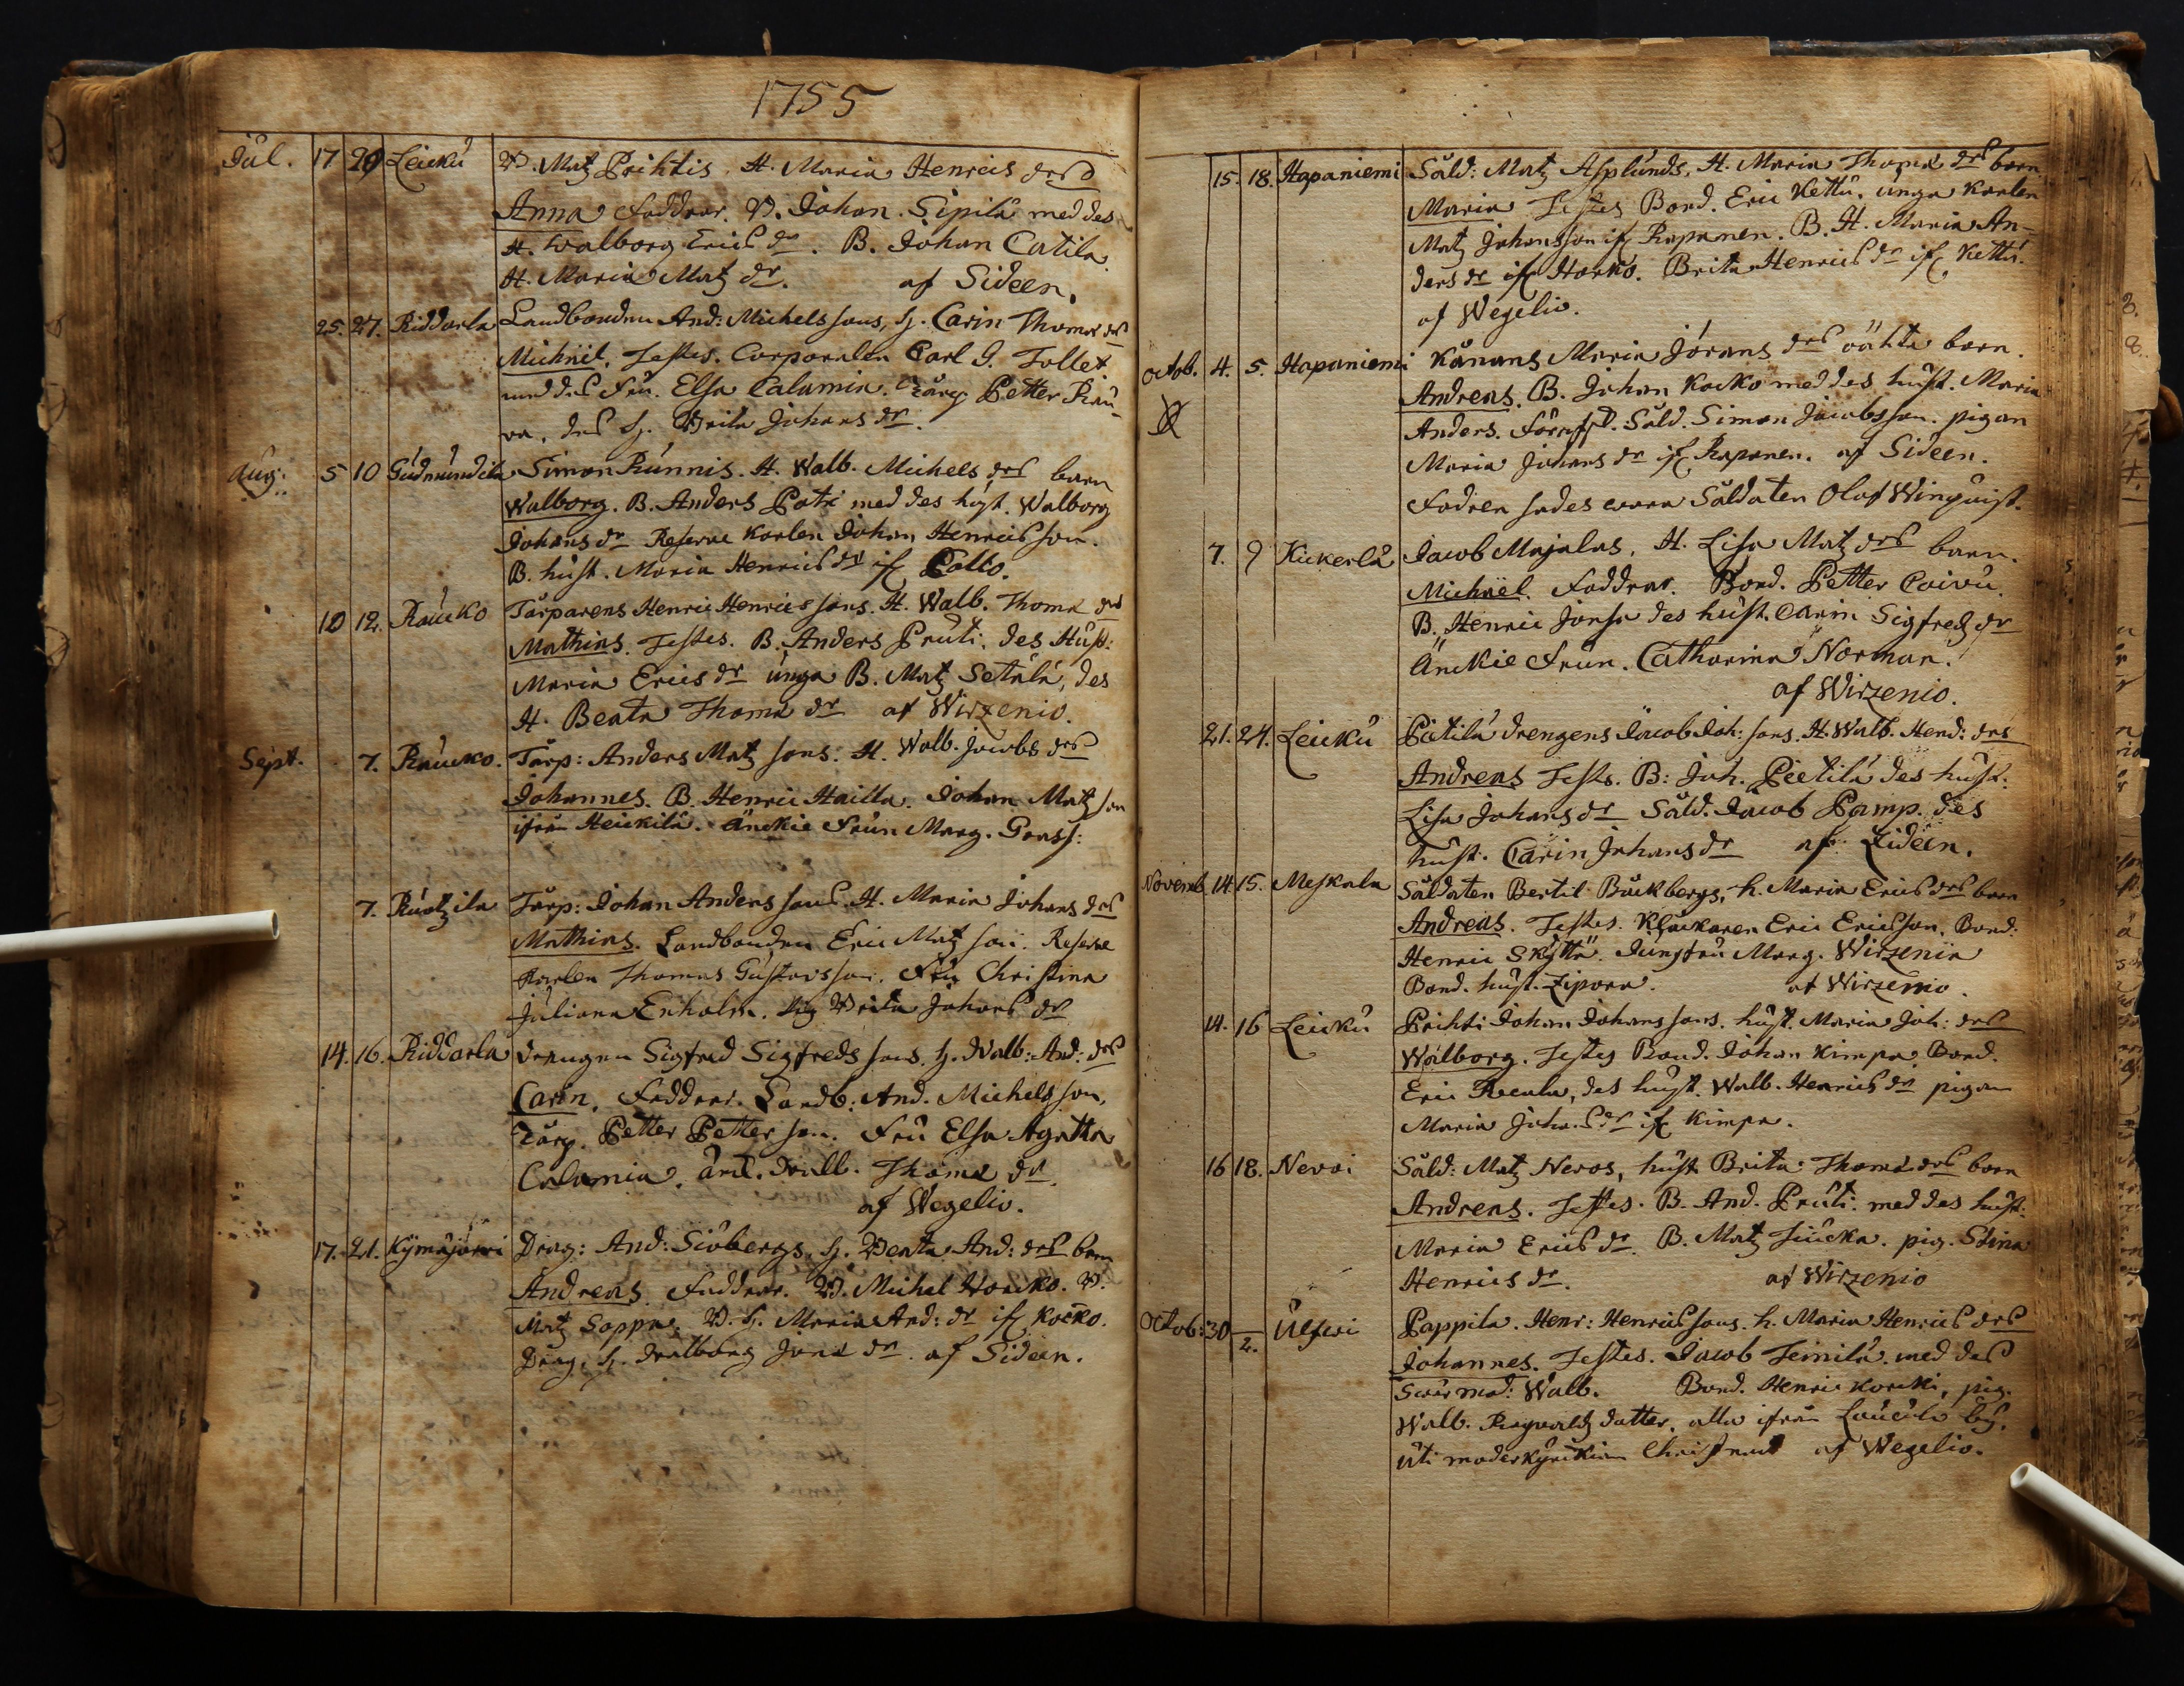 1755
Jul. 17 20 Leickü B. Matz Prihtis. H. Maria Henrics drs
Anna Faddrar. B. Johan Sipilä med des
H. Walborg Erics dr. B. Johan Catila
H. Maria Matz dr. af Sideen.
25. 27. Riddarla Landbonden And: Michelssons, H. Carin Thomæ drs
Michäel. Testes. Corporalen Carl G. Tollet
med des Fru. Elsa Calamia. Torp. Petter
des H. Brita Johans dr.
Aug: 5 10 Gudmundila Simon Runnis. H. Walb. Michels drs barn
Walborg. B. Anders Patri med des hust. Walborg
Johans dr Reserve Karlen Johan Henricsson.
B. hust. Maria Henrics dr if
10 12. Raucko Torparens Henric Henricssons. H. Walb. Thomæ drs
Mathias. Testes. B. Anders Pruti. des Hust:
Maria Erics dr unga B. Matz Setälä, des
H. Beata Thomæ dr af Wirzenio.
Sept. 7. Raucko. Torp: Anders Matzsons. H. Walb. Jacobs drs
Johannes. B. Henric Hailla. Johan Matzson
ifrån Heickilä. Änckie Frun Marg. Grass:
7. Ruotzila Torp: Johan Anderssons H. Maria Johans drs
Mathias. Landbonden Eric Matzson. Reserve
Karlen Thomas Gustavsson. Fru Christina
Juliana Enholm. Pig Brita Johans dr
14. 16. Riddarla Drengen Sigfred Sigfredssons H. Walb: And: drs
Carin. Faddrar. Landb: And. Michelsson,
Torp. Petter Petterson. Fru Elsa Agatha
Calamia. Walb. Thomæ dr.
af Wegelio.
17. 21. Kymäjärvi Drag: And: Siöbergs H. Beata And: drs barn
Andreas. Faddrar. B. Michel Horcko. B.
Matz Soppa. B. H. Maria And: dr if Kocko.
Drag. H. Walborg Jöns dr. af Sideen.
15. 18. Hapaniemi Såld: Matz Asplunds, H. Maria Thomæ drs barn
Maria Testes Bond. Eric Kettu. unga Karlen
Matz Johansson if Rapanen. B. H. Maria An-
ders dr if Horko. Brita Henrics dr if Kettu.
af Wegelio.
Octob. 4. 5. Hapaniemi Kånans Maria Jörans drs oächta barn.
Andreas. B. Johan Kocko med des hust. Maria
Anders. Såld. Simon Jacobsson. pigan
Maria Johans dr if Rapanen. af Sideen.
Fadren sades wara Såldaten Olof Winquist.
7. 9 Kickerlä Jacob Majalas, H. Lisa Matz drs barn
Michäel. Faddrar. Bond. Petter Coivu.
B. Henric Jonsa des hust. Carin Sigfredz dr
Änckie Frun. Catharina Norman.
af Wirzenio.
21. 24. Leickü Pietilä drengens Jacob Joh:sons. H. Walb. Hend: drs
Andreas Testes. B: Joh. Pietilä des hust:
Lisa Johans dr Såld. Jacob Pamp. des
hust. Carin Johans dr af Sideen.
Novemb 14 15. Meskala Såldaten Bertil Bäckbergs, h. Maria Erics drs barn
Andreas. Testes. Klåckaren Eric Ericsson. Bond:
Henric Skyttä. Jungfru Marg. Wirzenia
Bond. hust. Zipora. af Wirzenio.
14. 16 Leickü Prihti Johan Johanssons. hust. Maria Joh: drs
Walborg. Testes Bond. Johan Kimpa. Bond.
Eric des hust. Walb. Henrics dr pigan
Maria Johans dr if Kimpa.
16 18. Nevoi Såld: Matz Neros, hust Brita Thomæ drs barn
Andreas. Testes. B. And. Pruti med des hust:
Maria Erics dr. B. Matz pig. Stina
Henrics dr. af Wirzenio
Octob: 30 2. Ulfsei Pappila. Henr: Henricssons. h. Maria Henrics drs
Johannes. Testes. Jacob med des
Swärmod: Walb. Bond. Henric Korcki, pig.
Walb. Ragwaldz dotter, alla ifrån by.
uti moderkyrckian Christnat af Wegelio.